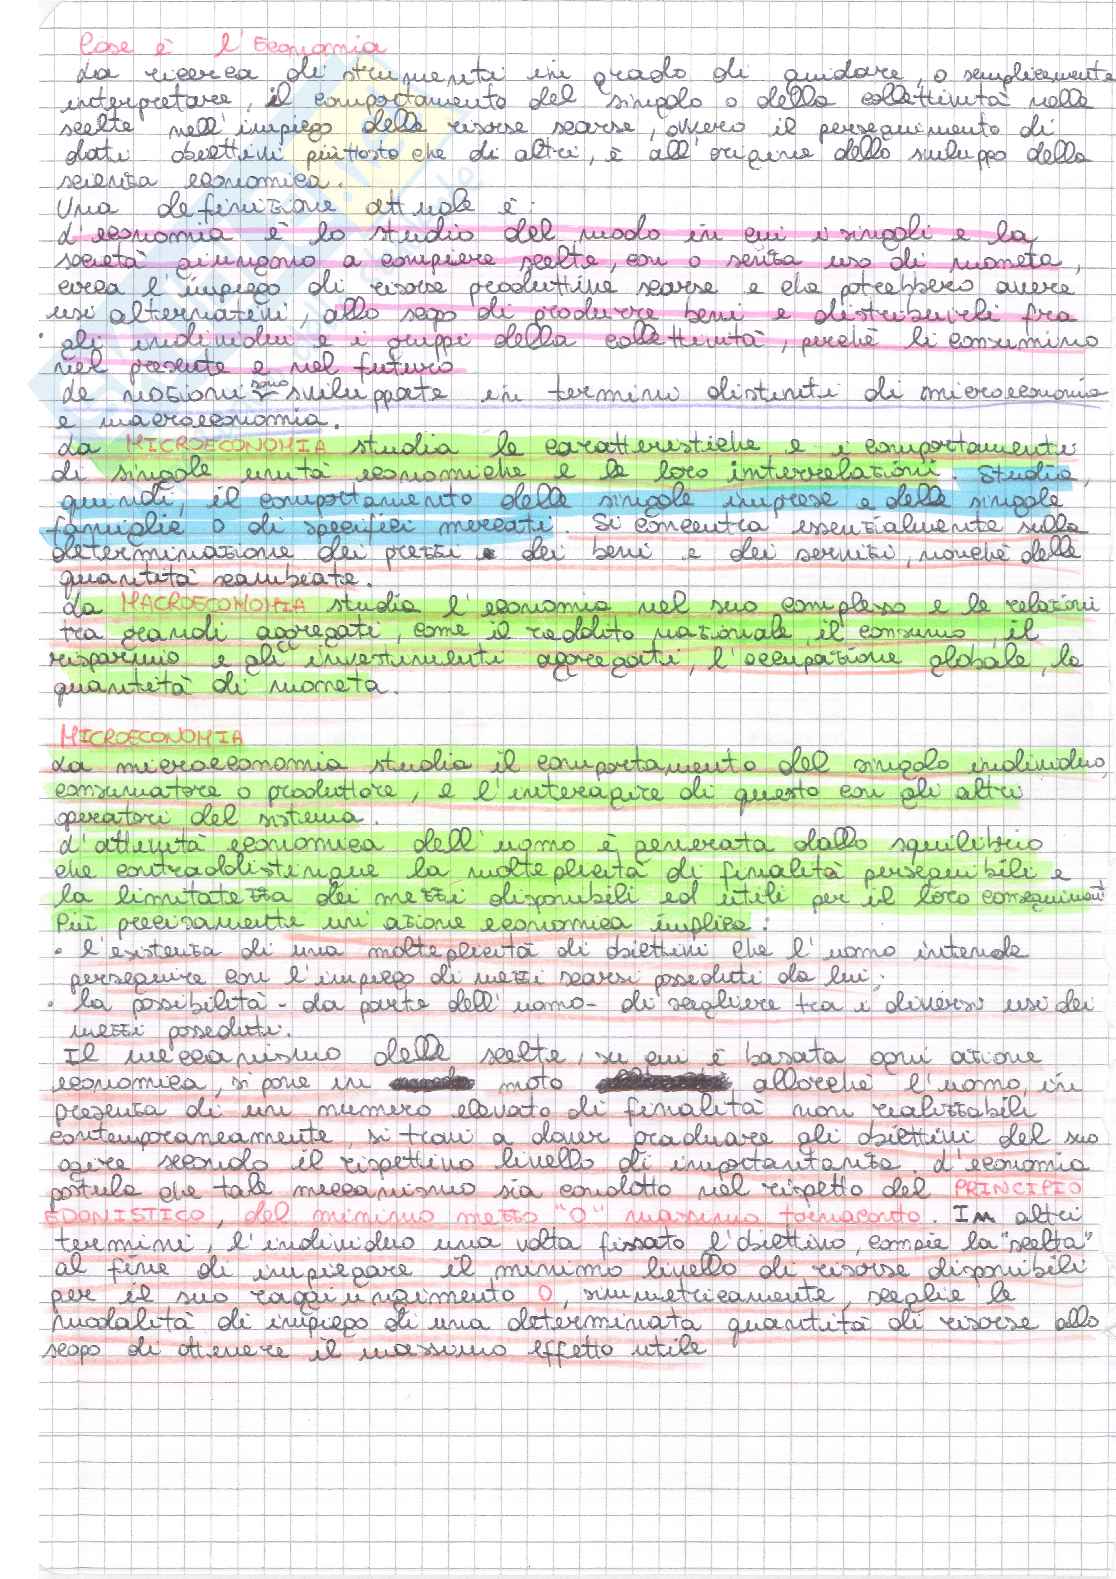 Cose è l'Economia
La ricerca di strumenti in grado di guidare, o semplicemente
interpretare, il comportamento del singolo o della collettività nelle
scelte nell'impiego delle risorse scarse, ovvero il perseguimento di
dati obiettivi piuttosto che di altri, è all'origine dello sviluppo della
scienza economica.
Una definizione attuale è:
L'economia è lo studio del modo in cui i singoli e la
società giungono a compiere scelte, con o senza uso di moneta,
circa l'impiego di risorse produttive scarse e che potrebbero avere
usi alternativi, allo scopo di produrre beni e distribuirli fra
gli individui e i gruppi della collettività, perchè li consumino
nel presente e nel futuro
Le nozioni sono sviluppate in termini distinti di microeconomia
e macroeconomia.
La MICROECONOMIA studia le caratteristiche e i comportamenti
di singole unità economiche e le loro interrelazioni. Studia,
quindi, il comportamento delle singole imprese e delle singole
famiglie o di specifici mercati. Si concentra essenzialmente sulla
determinazione dei prezzi dei beni e dei servizi, nonchè delle
quantità scambiate.
La MACROECONOMIA studia l'economia nel suo complesso e le relazioni
tra grandi aggregati, come il reddito nazionale, il consumo, il
risparmio e gli investimenti aggregati, l'occupazione globale, la
quantità di moneta.
MICROECONOMIA
La microeconomia studia il comportamento del singolo individuo,
consumatore o produttore, e l'interagire di questo con gli altri
operatori del sistema.
L'attività economica dell'uomo è generata dallo squilibrio
che contraddistingue la molteplicità di finalità perseguibili e
la limitatezza dei mezzi disponibili ed utili per il loro conseguiment
Più precisamente un'azione economica implica:
• l'esistenza di una molteplicità di obiettivi che l'uomo intende
perseguire con l'impiego di mezzi scarsi posseduti da lui;
• la possibilità - da parte dell'uomo - di scegliere tra i diversi usi dei
mezzi posseduti.
Il meccanismo delle scelte, su cui è basata ogni azione
economica, si pone in moto allorchè l'uomo, in
presenza di un numero elevato di finalità non realizzabili
contemporaneamente, si trovi a dover graduare gli obiettivi del suo
agire secondo il rispettivo livello di importantanza. L'economia
postula che tale meccanismo sia condotto nel rispetto del PRINCIPIO
EDONISTICO, del minimo mezzo "O" massimo tornaconto. In altri
termini, l'individuo una volta fissato l'obiettivo, compie la "scelta"
al fine di impiegare il minimo livello di risorse disponibili
per il suo raggiungimento O, simmetricamente, sceglie le
modalità di impiego di una determinata quantità di risorse allo
scopo di ottenere il massimo effetto utile